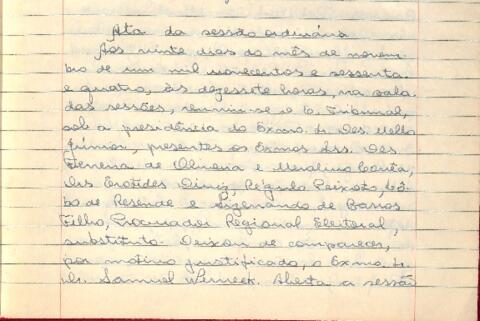 Ata da sessão ordinária
Aos vinte dias do mês de novem
bro de um mil novecentos e sessenta
e quatro, às dezessete horas, na sala
das sessões, reuniu-se o E. Tribunal,
sob a presidência do Exmo. Sr. Des. Mello
Júnior, presentes os Exmos Srs. Des.
Ferreira de Oliveira e Merolino Corrêa,
Drs Erotides Diniz, Régulo Peixoto,
bo de Resende e Sizenando de Barros
Filho, Procurador Regional Eleitoral,
substituto. Deixou de comparecer,
por motivo justificado, o Exmo. Sr.
Dr. Samuel Werneck. Aberta a sessão